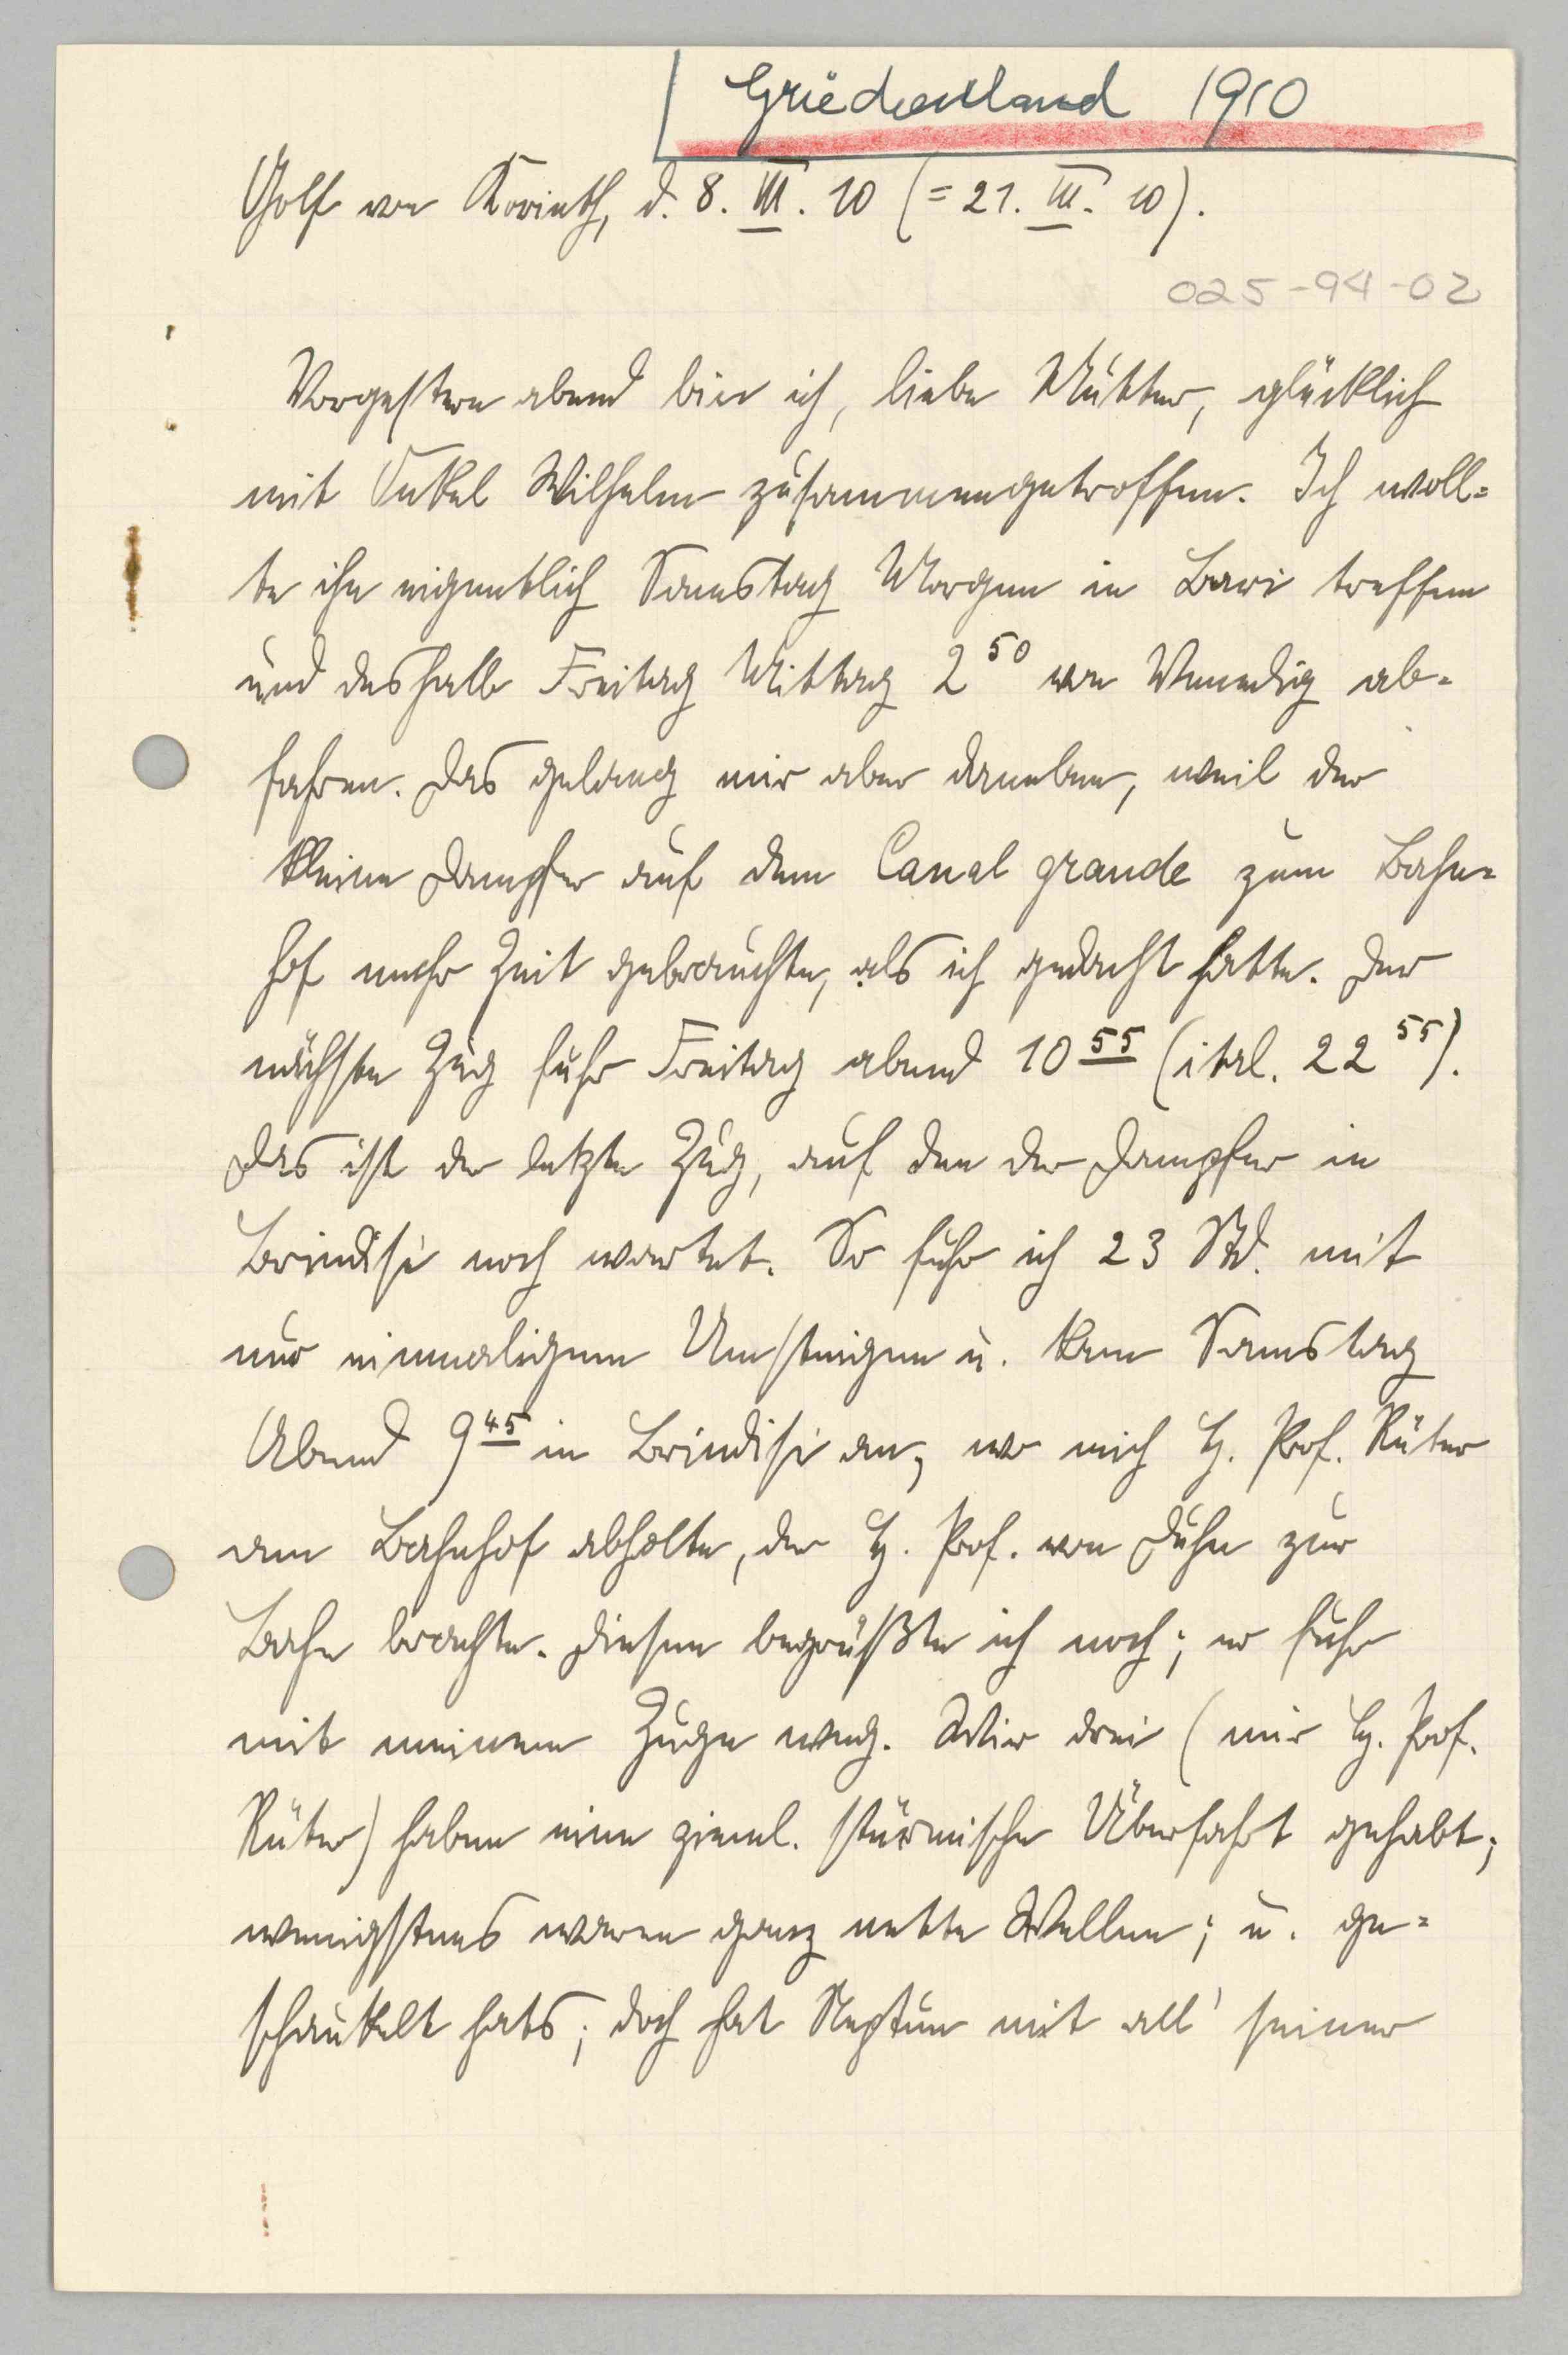 Griechenland 1910
Golf von Korinth, d. 8. III. 10 (= 21. III. 10).
025-94-02
Vorgestern abend bin ich, liebe Mutter, glücklich
mit Onkel Wilhelm zusammengetroffen. Ich woll-
te ihn eigentlich Samstag Morgen in Bari treffen
und deshalb Freitag Mittag 2 50 von Venedig ab-
fahren. Das gelang mir aber daneben, weil der
kleine Dampfer auf dem Canal grande zum Bahn-
hof mehr Zeit gebrauchte, als ich gedacht hatte. Der
nächste Zug fuhr Freitag abend 10 55 (ital. 22 55).
Das ist der letzte Zug, auf den der Dampfer in
Brindisi noch wartet. So fuhr ich 23 Std. mit
nur einmaligem Umsteigen u. kam Samstag
Abend 9 45 in Brindisi an, wo mich H. Prof. Rüter
am Bahnhof abholte, der H. Prof. von Duhn zur
Bahn brachte. Diesen begrüßte ich noch; er fuhr
mit meinem Zuge weg. Wir drei (mir H. Prof.
Rüter) haben eine zieml. stürmische Überfahrt gehabt;
wenigstens waren ganz nette Wellen; u. ge-
schaukelt hats; doch hat Neptun mit all' seiner